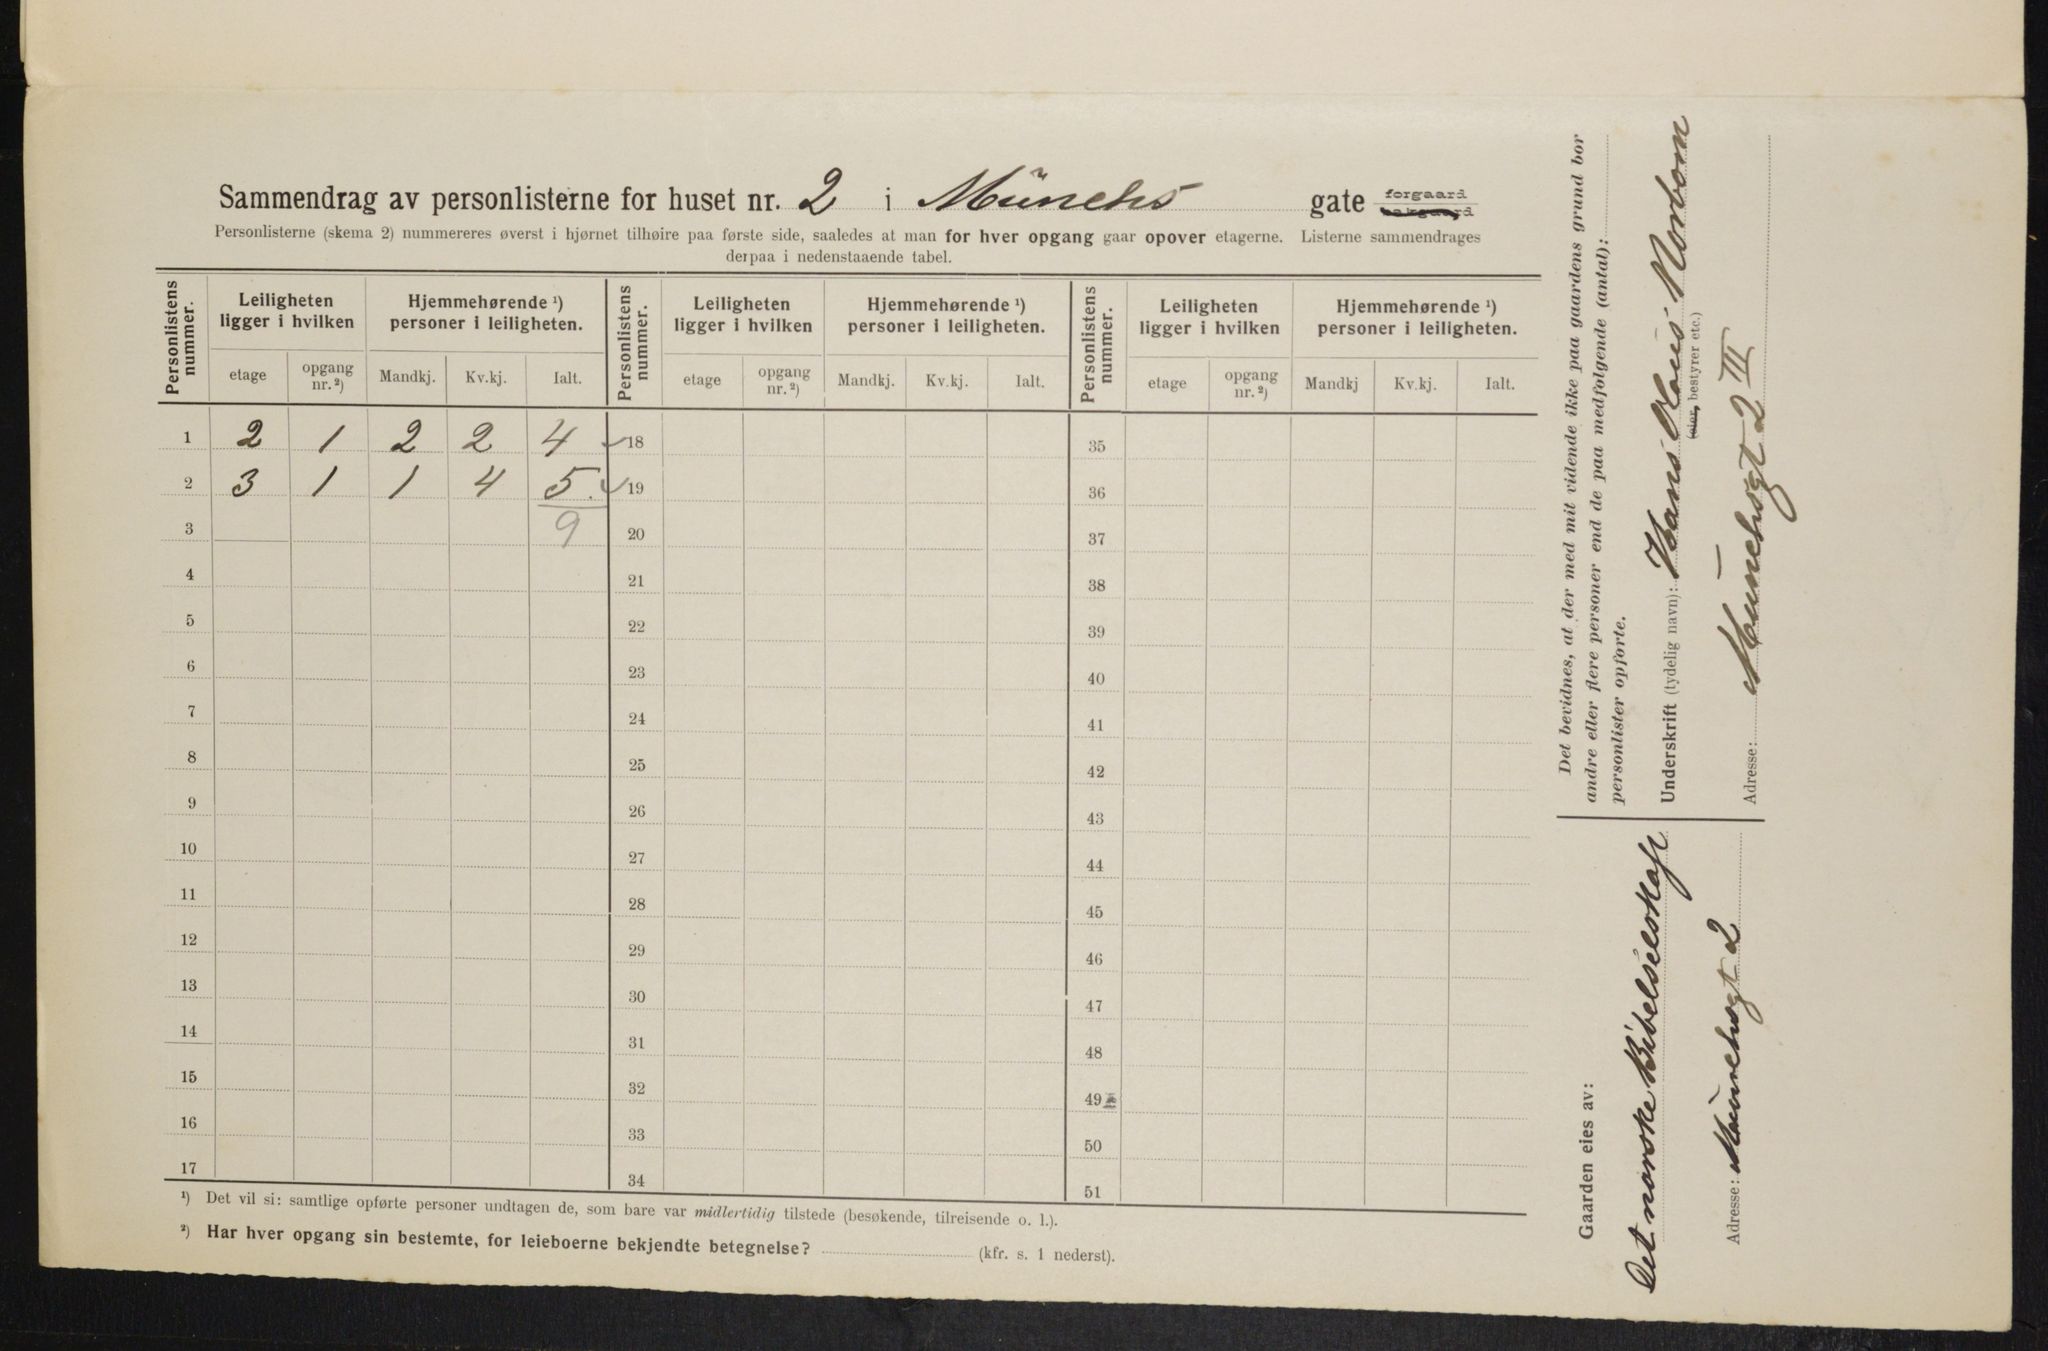 Sammendrag av personlisterne for huset nr. 2 i Münchs gate forgaard bakgaard
Personlisterne (skema 2) nummereres øverst i hjørnet tilhøire paa første side, saaledes at man for hver opgang gaar opover etagerne. Listerne sammendrages
derpaa i nedenstaaende tabel.
Personlistens nummer. Leiligheten ligger i hvilken Hjemmehørende ¹) personer i leiligheten. Personlistens nummer. Leiligheten ligger i hvilken Hjemmehørende ¹) personer i leiligheten. Personlistens nummer. Leiligheten ligger i hvilken Hjemmehørende ¹) personer i leiligheten.
etage opgang nr. ²) Mandkj. Kv.kj. Ialt. etage opgang nr. ²) Mandkj. Kv.kj. Ialt. etage opgang nr. ²) Mandkj Kv.kj. Ialt.
1 2 1 2 2 4 18 35
2 3 1 1 4 5. 19 36
3 9 20 37
4 21 38
5 22 39
6 23 40
7 24 41
8 25 42
9 26 43
10 27 44
11 28 45
12 29 46
13 30 47
14 31 48
15 32 49
16 33 50
17 34 51
¹) Det vil si: samtlige opførte personer undtagen de, som bare var midlertidig tilstede (besøkende, tilreisende o. l.).
²) Har hver opgang sin bestemte, for leieboerne bekjendte betegnelse? (kfr. s. 1 nederst).
Det bevidnes, at der med mit vidende ikke paa gaardens grund bor
andre eller flere personer end de paa medfolgende (antal):
personlister opforte.
Underskrift (tydelig navn): Hans Mons Norbom
(eier, bestyrer etc.)
Adresse: Münchsgt 2 III
Gaarden eies av:
Det norske Bibelselskap
Adresse: Münchsgt 2